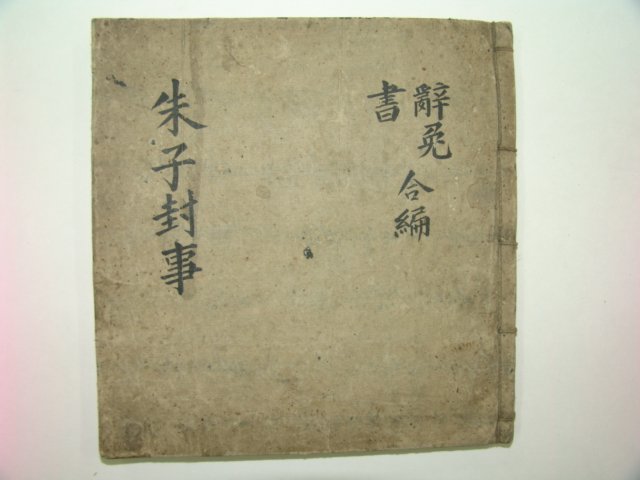 辭免
書
合編
朱子封事